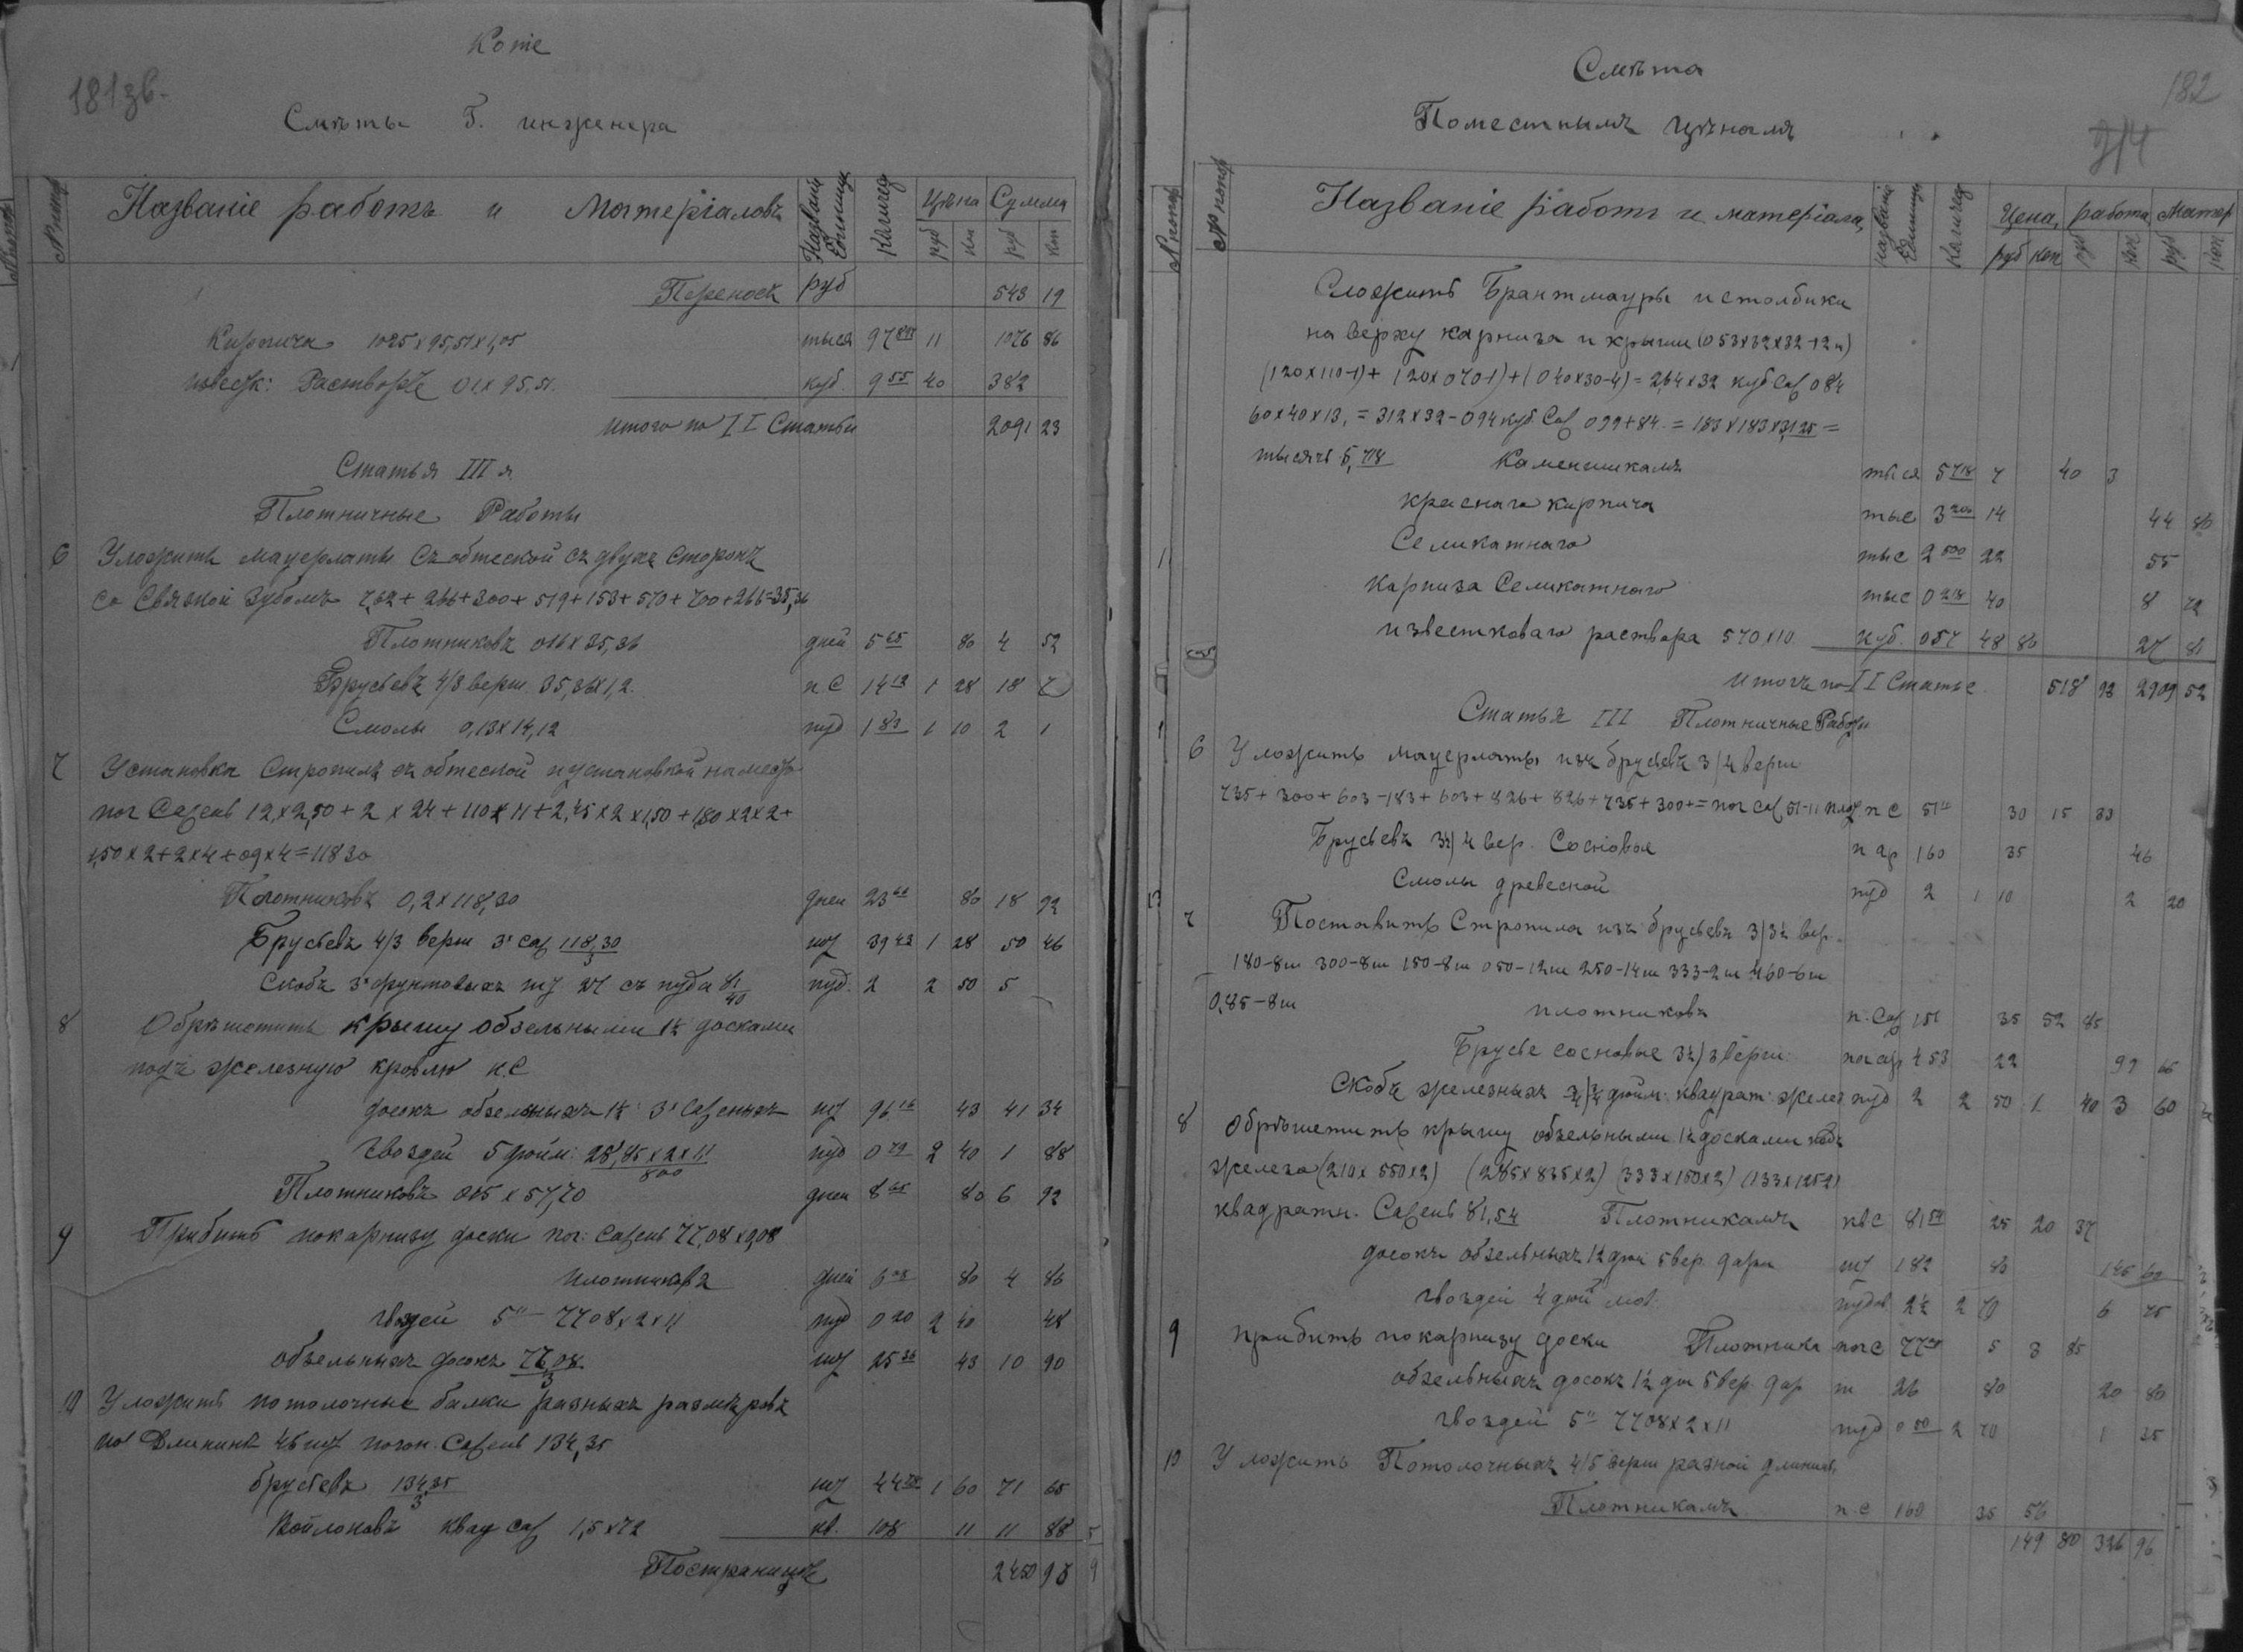 Копіе
181 зв.
Смѣты Г. инженера
№ по пор
Названіе работъ и Матеріаловъ
Названіе Единицы
Количес
Цѣна
Сумма
руб коп руб коп
Переносъ руб 543 19
Кирпича 1025 х 95,51 х 1,05 тыся 97 11 1076 86
Известк: Раствора 0,1 х 95,51 куб. 9 55 40 382
Итого по II Статьи 2091 23
Статья III я
Плотничные Работы
6 Уложить мауерлаты съ обтеской съ двухъ сторонъ
со Связкой Зубомъ 7,62 + 266 + 300 + 519 + 153 + 570 + 700 + 266 = 35,36
Плотниковъ 016 х 35,36 дней 5 65 80 4 52
Брусьевъ 4/3 верш 35,36 х 1,2 п С 14 12 1 28 18 7
Смолы 0,13 х 14,12 пуд 1 83 1 10 2 1
7 Установка Стропилъ съ обтеской и установкой на место
пог Сажень 12 х 2,50 + 2 х 24 + 110 х 11 + 2,45 х 2 х 1,50 + 1,80 х 2 х 2 +
1,50 х 2 + 2 х 4 + 09 х 4 = 118 30
Плотниковъ 0,2 х 118,30 дней 23 80 18 92
Брусьевъ 4/3 верш 3х саж 118,30/3 шт 39 43 1 28 50 46
Скобъ 3х фунтовыхъ шт 27 съ пуда 81/40 пуд. 2 2 50 5
8 Обрѣшотить крышу обзельными 1½ досками
подъ железную кровлю к.С
досокъ обзельныхъ 1½ 3х Саженыхъ шт 96 16 43 41 34
Гвоздей 5 дюйм: 28,85 х 2 х 11/800 пуд 0 79 2 40 1 88
Плотниковъ 015 х 57,70 дней 8 65 80 6 92
9 Прибить покарнизу доски пог: Сажень 77,08 х 0,08
плотниковъ дней 6 08 80 4 86
гвоздей 5" - 7708 х 2 х 11 пуд 0 20 2 40 48
обзельныхъ досокъ 77,08/3 шт 25 36 43 10 90
10 Уложить потолочные балки разныхъ размѣровъ
по Длининѣ 45 шт погон. Сажень 134,35
брусьевъ 134,35/3 шт 44 78 1 60 71 65
Войлоковъ квад саж 1,5 х 72 кв. 108 11 11 88
Постраницѣ 2450 98
182
Смѣта
Поместнымъ Цѣнамъ
214
№ по пор
Названіе работъ и матеріала,
Названіе Единицы
Количес
Цена, работа, Матер
руб коп руб коп руб коп
Сложить Брантмауры и столбики
на верху карниза и крыши (053х32х32-12ш)
(120х110-1) + (120х070-1) + (040х30-4) = 264х32 куб Саж 084
60х40х13, = 312х32-094 куб. Саж 099+84 = 183х183х3125 =
тысячъ 5,718 Каменщикамъ тыся 5 718 7 40 3
краснаго кирпича тыс 3 200 14 44 80
Селикатнаго тыс 2 500 22 55
Карниза Селикатнаго тыс 0 218 40 8 72
известковаго раствора 570х10 куб. 057 48 80 27 81
Итогъ по II Статье 518 92 2909 52
Статья III Плотничные Работы
6 Уложить мауерлаты изъ брусьевъ 3/4 верш
735 + 300 + 603 - 183 + 603 + 826 + 826 + 735 + 300 + = пог саж 51-11 п С 51 11 30 15 33
Брусьевъ 3½/4 вер. Сосновые п ар 160 35 46
Смолы древесной пуд 2 1 10 2 20
7 Поставить Стропила изъ брусьевъ 3/3½ вер.
180-8ш 300-8ш 150-8ш 050-12ш 250-14ш 333-2ш 460-6ш
0,85-8ш плотниковъ п. Саж 151 35 52 85
Брусье сосновые 3½/3 верш. пог ар 453 22 99 66
Скобъ железныхъ ¾/¾ дюйм: квадрат: желез пуд 2 2 50 1 40 3 60
8 Обрѣшетить крышу обзельными 1½ досками подъ
железо (210х550х2) (285х835х2) (333х150х2) (133х125-2)
квадратн. Сажень 81,54 Плотникамъ кв С 81 54 25 20 37
досокъ обзельныхъ 1½ дюй 5 вер. 9 арш шт 182 80 145 60
гвоздей 4 дюй пудов 2½ 2 70 6 75
9 прибить покарнизу доски Плотника пог С 77 08 5 3 85
обзельныхъ досокъ 1½ дю 5 вер. 9 ар ш 26 80 20 80
гвоздей 5" 7708х2х11 пуд 0 50 2 70 1 35
10 Уложить Потолочныхъ 4/5 верш разной длинны,
Плотникамъ п. с 160 35 56
149 80 326 96